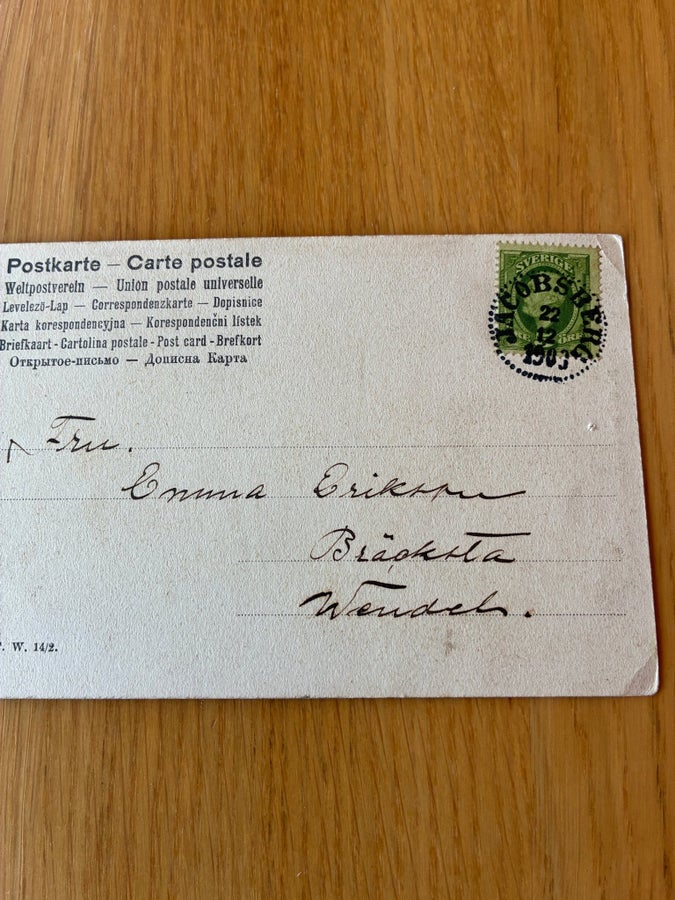 Postkarte – Carte postale
Weltpostverein — Union postale universelle
Levelező-Lap — Correspondenzkarte — Dopisnice
Karta korespondencyjna — Korespondenční lístek
Briefkaart - Cartolina postale - Post card - Brefkort
Открытое-письмо — Дописна Карта
SVERIGE
JACOBSBERG
22
12
1903
ÖRE
Fru.
Emma Erikson
Bräcksta
Wendel.
W. 14/2.